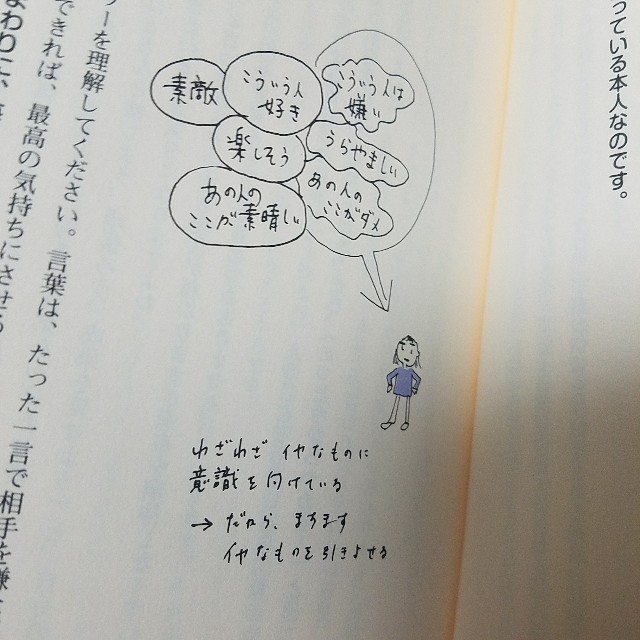 っている本人なのです。
素敵
こういう人
好き
こういう人は
嫌い
楽しそう
うらやましい
あの人の
ここが素晴しい
あの人の
ここがダメ
わざわざ イヤなものに
意識を付けている
→ だから、ますます
イヤなものを引きよせる
ーを理解してください。言葉は、たった一言で相手を嫌
できれば、最高の気持ちにさせ
まわりに、